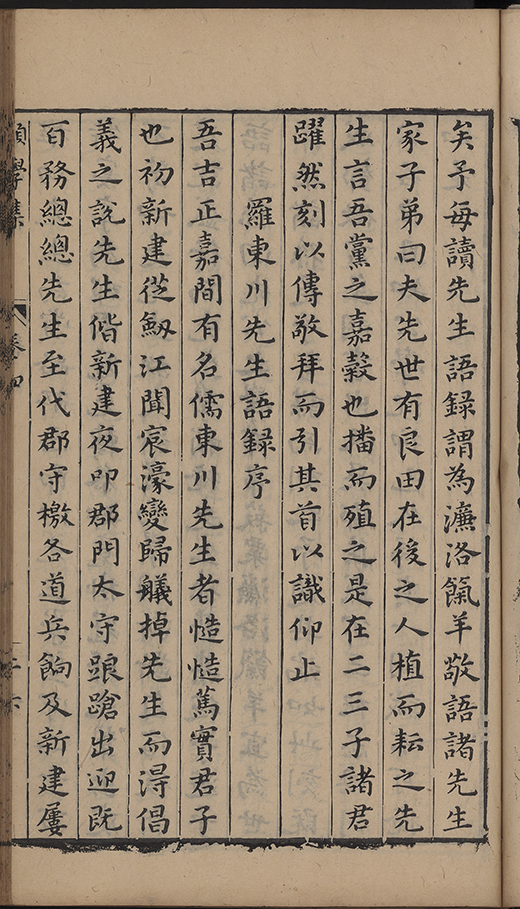 矣予每讀先生語録謂為濂洛餼羊敬語諸先生
家子弟曰夫先世有良田在後之人植而耘之先
生言吾黨之嘉糓也播而殖之是在二三子諸君
躍然刻以傳敬拜而引其首以識仰止
羅東川先生語録序
吾吉正嘉間有名儒東川先生者慥慥篤實君子
也初新建從劔江聞宸濠變歸艤掉先生而淂倡
義之說先生偕新建夜叩郡門太守踉蹌出迎既
百務總總先生至代郡守檄各道兵餉及新建屢
學集
卷四